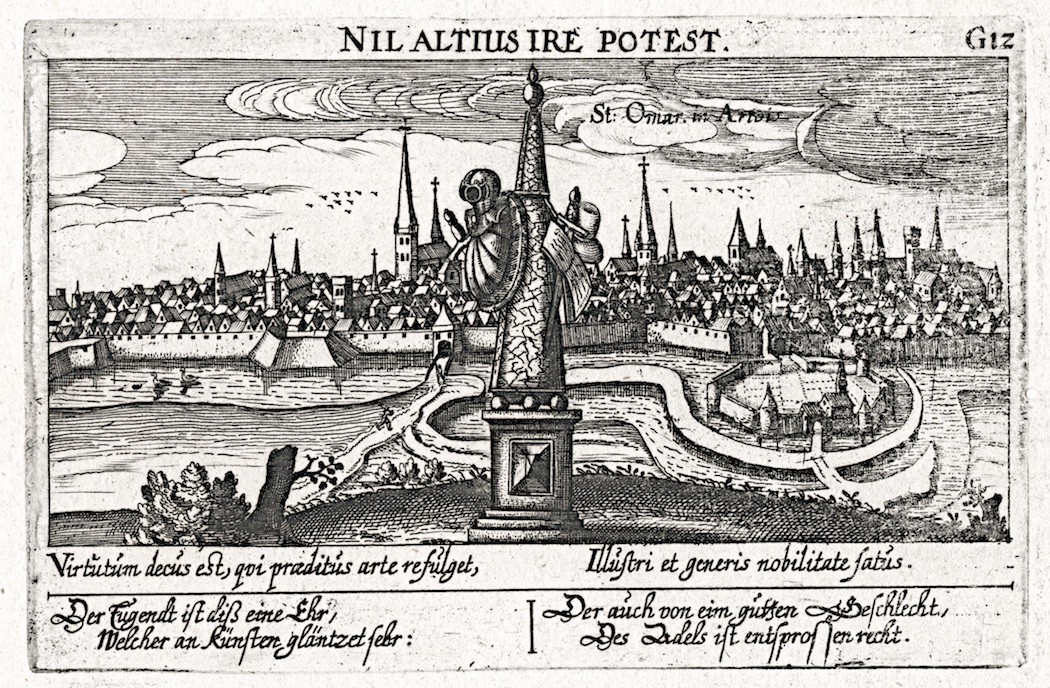 NIL ALTIUS IRE POTEST.
G12
St: Omar. in Artois
Virtutum decus est, qvi præditus arte refulget,
Illustri et generis nobilitate satus.
Der Tugendt ist diß eine Ehr,
Welcher an Künsten gläntzet sehr:
Der auch von eim gutten Geschlecht,
Des Adels ist entsprossen recht.